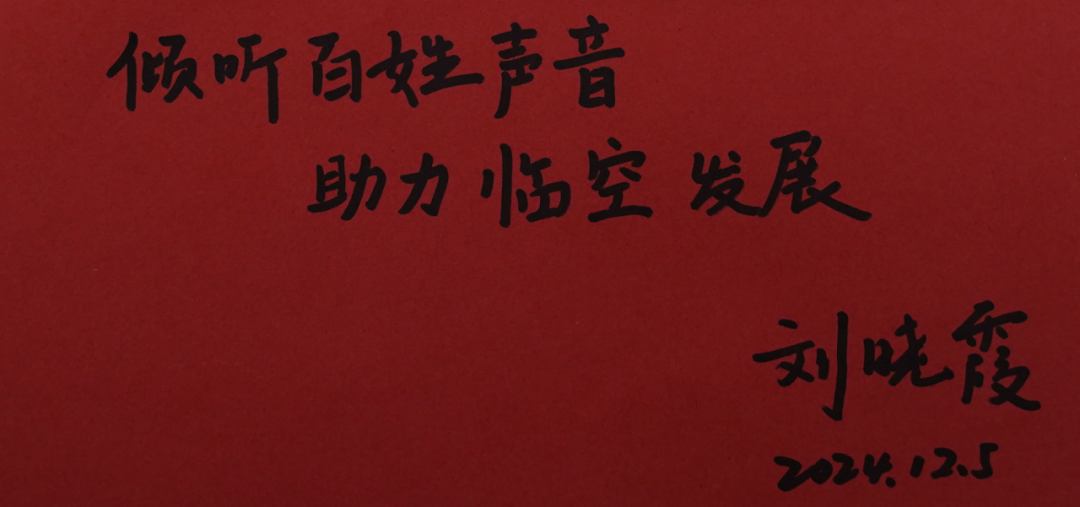 倾听百姓声音
助力临空发展
刘晓霞
2024.12.5